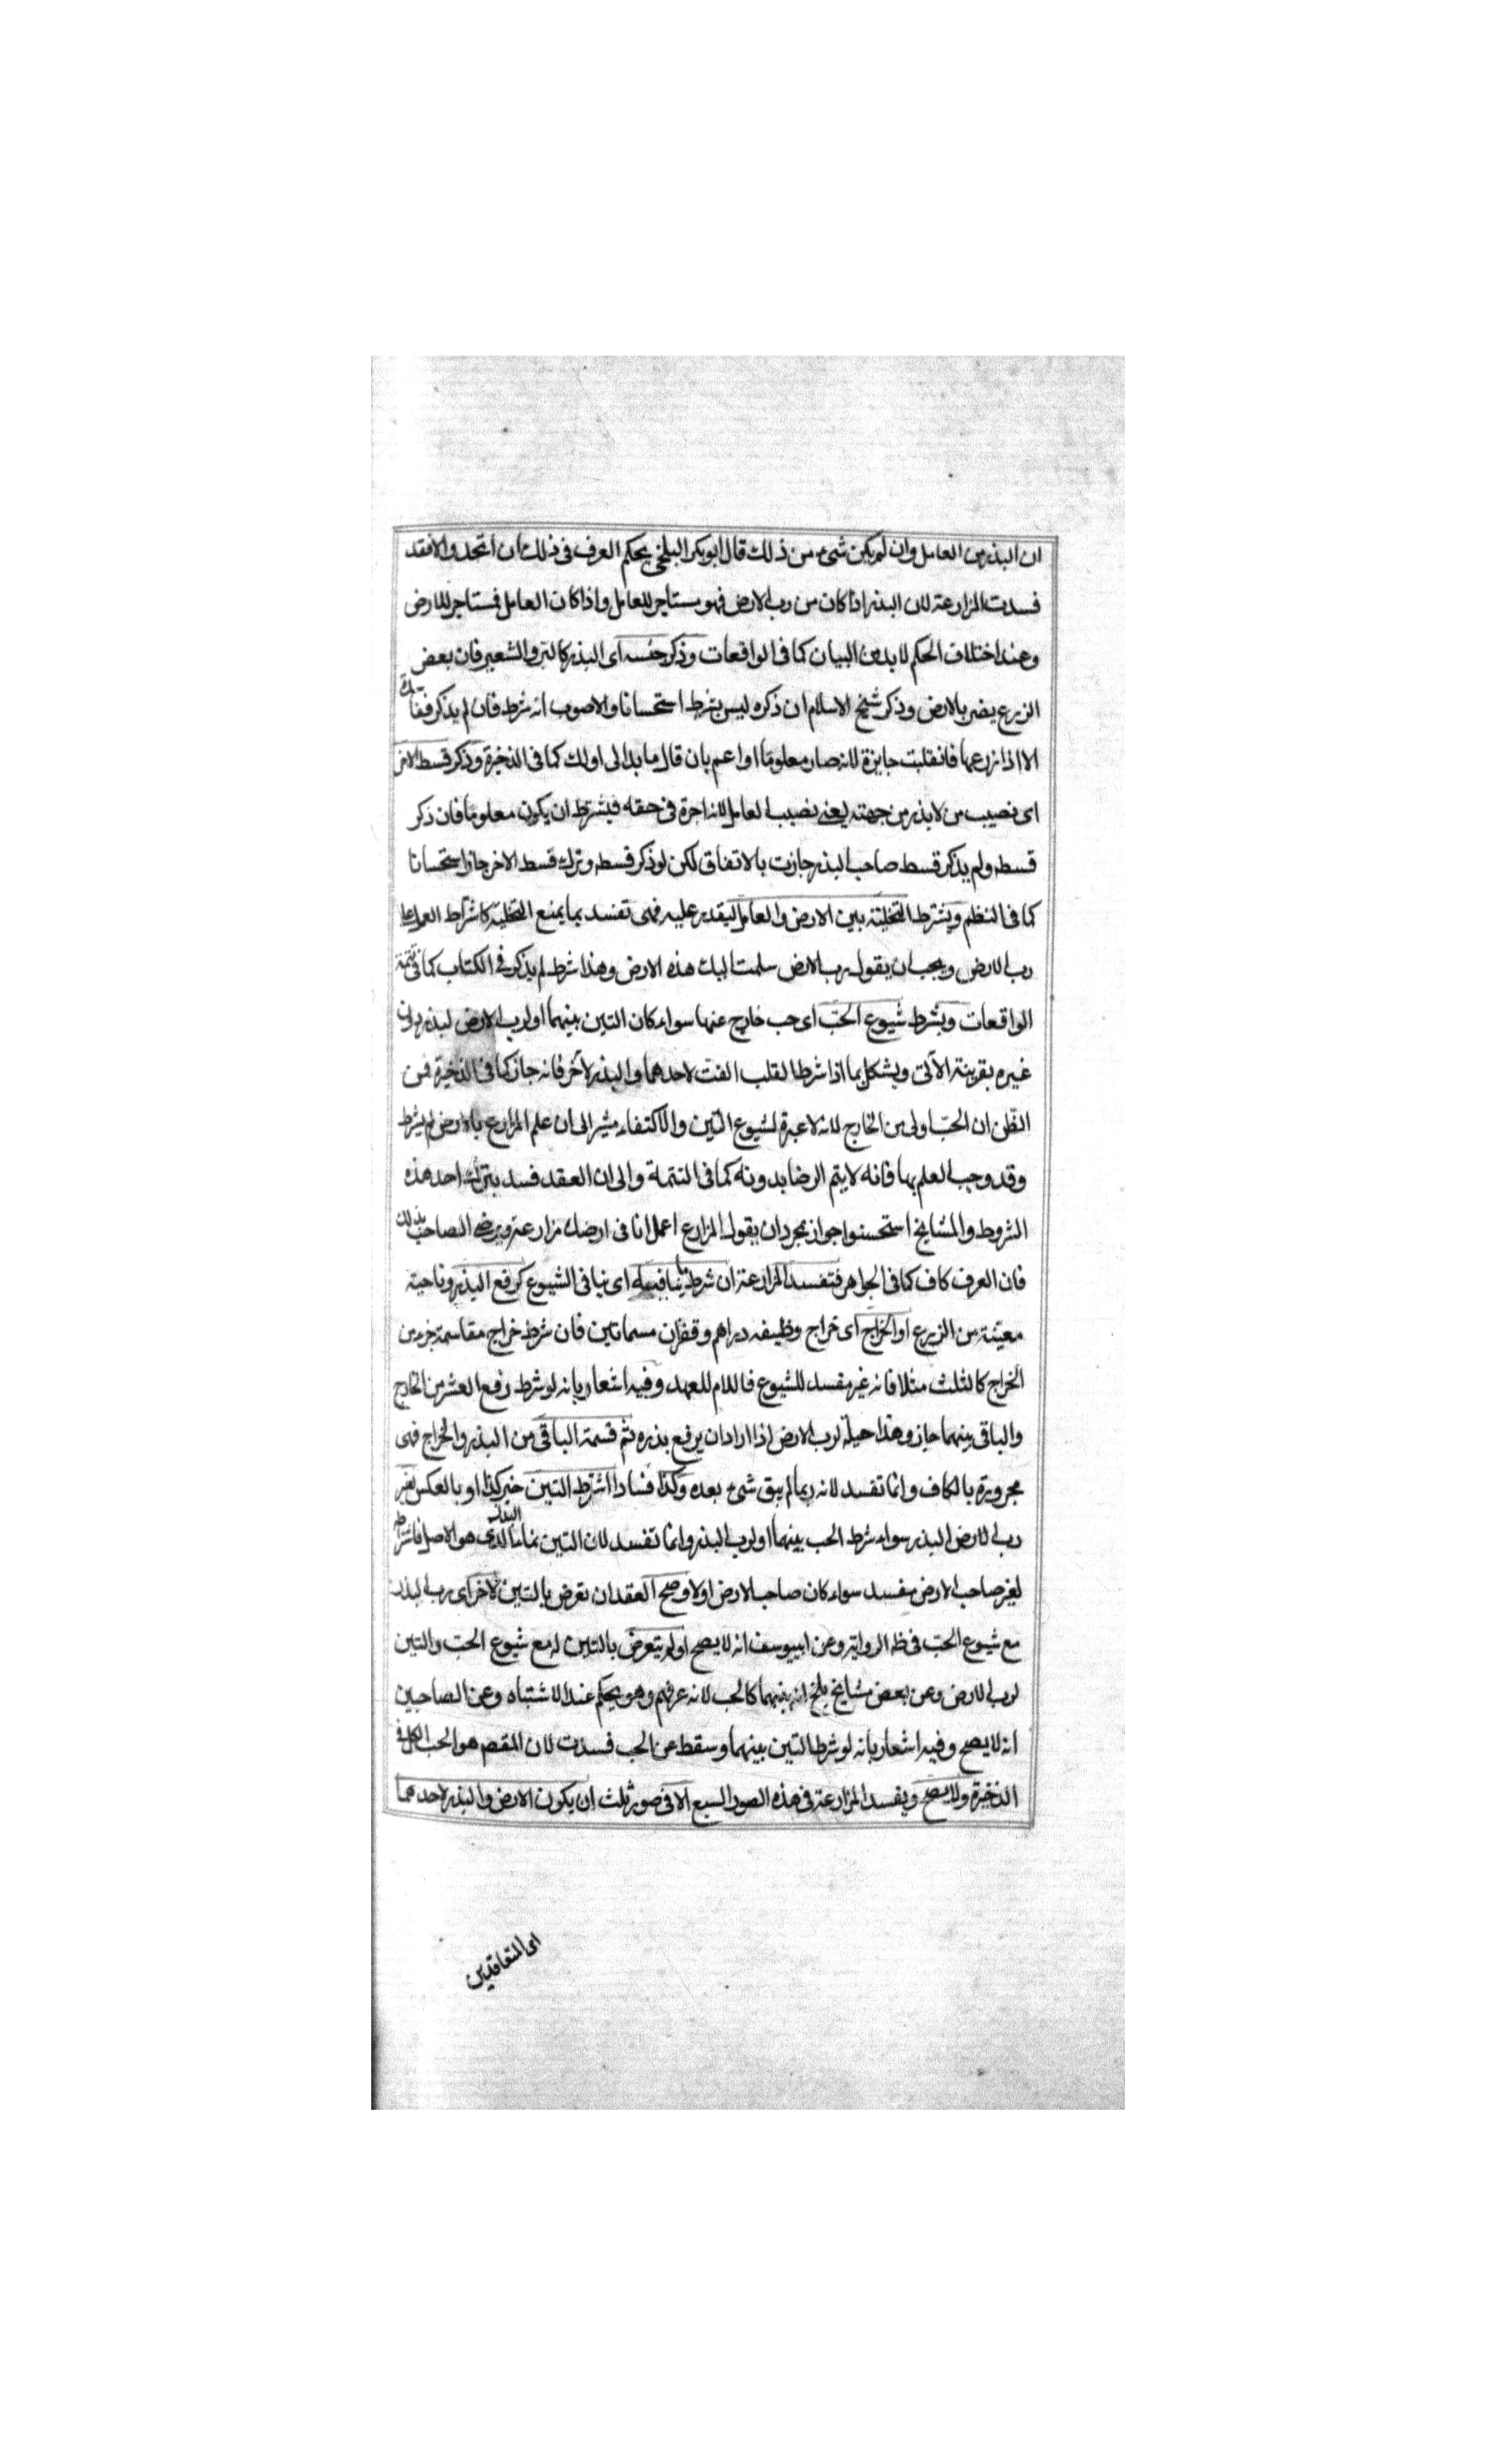 ان البذر من العامل وان لم يكن شئ من ذلك قال ابوبكر البلخى يحكم العرف فى ذلك ان اتحد والا فقد
فسدت المزارعة لان البذر اذا كان من رب الارض فهو مستاجر للعامل واذا كان العامل فمستاجر للارض
وعند اختلاف الحكم لا بد من البيان كما فى الواقعات وذكر جنسه اى البذر كالبر والشعير فان بعض
الزرع يضر بالارض وذكر شيخ الاسلام ان ذكره ليس بشرط استحسانا والاصوب انه شرط فان لم يذكر
الا اذا زرعها فانقلبت جايزة لانه صار معلوما او اعم بان قال ما بدا لى او لك كما فى الذخيرة وذكر قسط الاخر
اى نصيب من لا بذر من جهته يعنى نصيب العامل لانه اجرة فى حقه فيشترط ان يكون معلوما فان ذكر
قسطه ولم يذكر قسط صاحب البذر جازت بالاتفاق لكن لو ذكر قسطه وترك قسط الاخر جاز استحسانا
كما فى النظم ويشترط التخلية بين الارض والعامل ليقدر عليه فهى تفسد بما يمنع التخلية كاشتراط العمل على
رب الارض ويجب ان يقول رب الارض سلمت اليك هذه الارض وهذا شرط لم يذكر فى الكتاب كما فى تتمة
الواقعات ويشرط شيوع الحبّ اى حب خارج عنها سواء كان التبن بينهما او لرب الارض لبذره دون
غيره بقرينة الآتى ويشكل بما اذا شرطا لقلب الفت لاحدهما والبذر لآخر فانه جاز كما فى الذخيرة فمن
الظن ان الحبّ اولى من الخارج لانه لا عبرة لشيوع التبن والاكتفاء مشير الى ان علم المزارع بالارض لم يشرط
وقد وجب العلم بها فانه لا يتم الرضا بدونه كما فى التتمة والى ان العقد فسد بترك احد هذه
الشروط والمشايخ استحسنوا جواز بمجرد ان يقول المزارع اعمل انا فى ارضك مزارعة ويرضى الصاحب بذلك
فان العرف كاف كما فى الجواهر فتفسد المزارعة ان شرط ما ينافيه اى ينافى الشيوع كرفع البذر وناحية
معيّنة من الزرع او الخراج اى خراج وظيفه دراهم وقفزان مسماتين فان شرط خراج مقاسمة جزء من
الخراج كالثلث مثلا فانه غير مفسد للشيوع فاللام للعهد وفيه اشعار بانه لو شرط رفع العشر من الخارج
والباقى بينهما جاز وهذا حيلة لرب الارض اذا اراد ان يرفع بذره ثم قسمة الباقى من البذر والخراج فهى
مجرورة بالكاف وانما تفسد لانه ربما لم يبق شئ بعده وكذا فسادا اشترط التبن خبر كذا او بالعكس لغير
رب الارض البذر سواء شرط الحب بينهما او لرب البذر وانما تفسد لان التبن نماء البذر الذى هو الاصل فاشتراطه
لغير صاحب الارض مفسد سواء كان صاحب الارض اولا وصح العقد ان تعرض بالتبن لاخر اى رب البذر
مع شيوع الحبّ فى ظه الرواية وعن ابييوسف انه لا يصح او لم يتعرض بالتبن له مع شيوع الحبّ والتبن
لرب الارض وعن بعض مشايخ بلخ انه بينهما كالحب لانه عرفهم وهو يحكم عند الاشتباه وعن الصاحبين
انه لا يصح وفيه اشعار بانه لو شرطا لتبن بينهما وسقط عن الحب فسدت لان المقصم هو الحب الكل فى
الذخيرة ولا يصح ويفسد المزارعة فى هذه الصور السبع الا فى صور ثلث ان يكون الارض والبذر لاحدهما
اى المتعاقدين